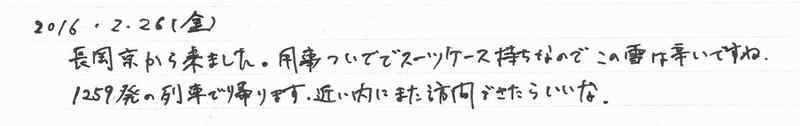 2016.2.26(金)
長岡京から来ました。用事ついででスーツケース持ちなのでこの雪は辛いですね.
1259発の列車で帰ります.近い内にまた訪問できたらいいな.